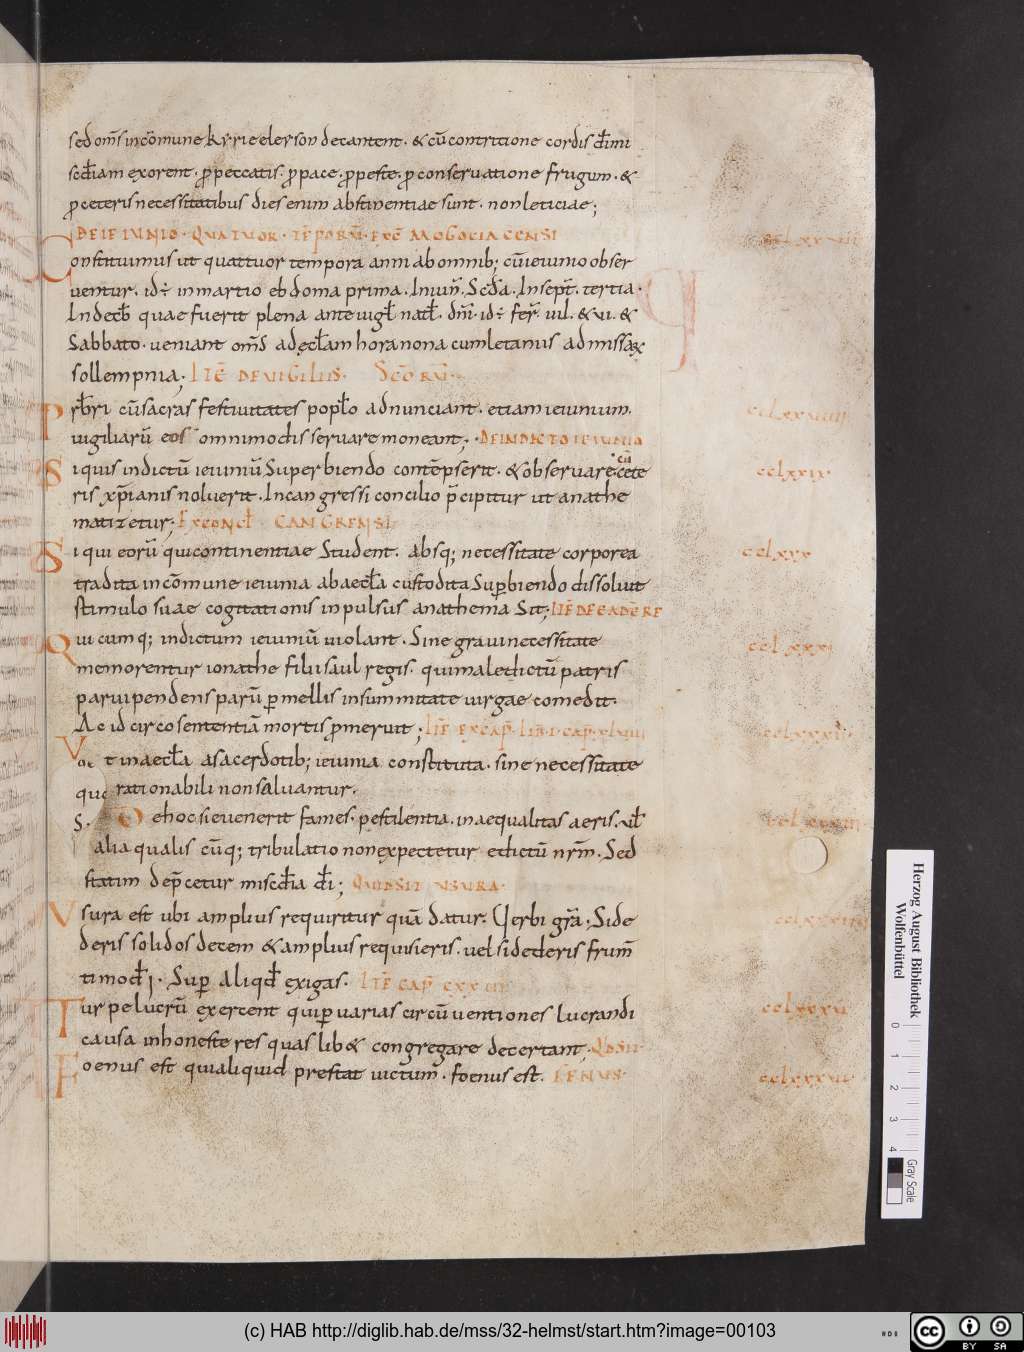 sed om̅s in co̅mune kyrie eleyson decantent · & cu̅ contritione cordis d̅i mi
sc̅diam exorent · p̱ peccatis · p̱ pace · p̱ peste · p̱ conseruatione frugum · &
p̱ ceteris necessitatibus dies enim abstinentiae sunt · non leticiae;
DE IEIUNIO · QUATUOR · TE̅PORU̅ · EX C̅ MOGOCIACENSI
Constituimus ut quattuor tempora anni ab omnib; cu̅ ieiunio obser
uentur · id ÷ in martio ebdoma prima · In iun̅ · Sc̅da · In sept̅ · tertia ·
In dec̅b quae fuerit plena ante uigl̅ nat̅l · dn̅i · id ÷ fer̅ · IIII · & VI · &
Sabbato · ueniant om̅s ad ęcl̅am hora nona cum letaniis ad missarum
sollempnia; ITE̅ DE VIGILIIS · SC̅ORU̅ ·
Pr̅bri cu̅ sacras festiuitates popl̅o adnuncient · etiam ieiunium
uigiliaru̅ eos omnimodis seruare moneant; · DE INDICTO IEIUNIO
Si quis indictu̅ ieiuniu̅ Superbiendo conte̅pserit · & obseruare cu̅ cete
ris xp̅ianis noluerit · In cangressi concilio p̅cipitur ut anathe
matizetur; EX CONCL̅ CANGRENSI ·
Si qui eoru̅ qui continentiae Student · absq; necessitate corporea
tradita in co̅mune ieiunia ab aecl̅a custodita Sup̱biendo dissoluit
stimulo suae cogitationis inpulsus anathema Sit; ITE̅ DE EADE̅ RE
Quicumq; indictum ieiuniu̅ uiolant · Sine graui necessitate
memorentur ionathe filii saul regis · qui maledictu̅ patris
paruipendens paru̅ p̱ mellis in summitate uirgae comedit ·
Ac idcirco sententia̅ mortis p̱meruit;
t in aecl̅a a sacerdotib; ieiunia constituta · sine necessitate
rationabili non saluantur ·
De hoc si euenerit fames · pestilentia · inaequalitas aeris · ul̅
alia qualis cu̅q; tribulatio non expectetur edictu̅ nr̅m · Sed
statim dep̅cetur misc̅dia d̅i; QUID SIT USURA ·
Vsura est ubi amplius requiritur qua̅ datur · Uerbi gr̅a · Si de
deris solidos decem & amplius requisieris · uel si dederis frum̅
ti mod̅ I · Sup̱ aliqd̅ exigas · ITE̅ CAP̅
Turpe lucru̅ exercent qui p̱ uarias circu̅uentiones lucrandi
causa inhoneste res quas lib& congregare decertant;
Foenus est qui aliquid prestat uictum̅ · foenus est · FENUS ·
cclxxix
cclxxx
cclxxxi
cclxxxv
cclxxxvi
Herzog August Bibliothek
Wolfenbüttel
0 1 2 3 4
Gray Scale
(c) HAB http://diglib.hab.de/mss/32-helmst/start.htm?image=00103
cc BY SA